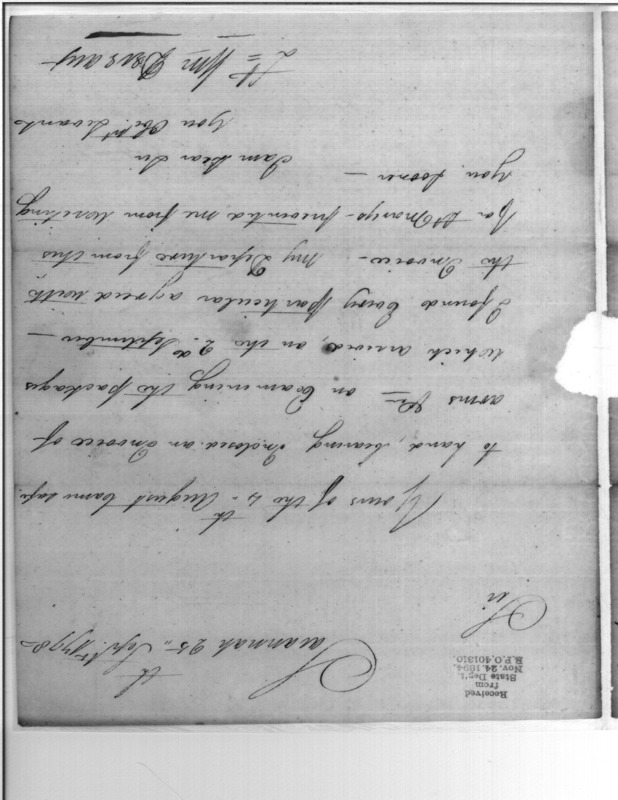 Received
from
State Dep't.
Nov. 24. 1894.
R.P.O. 401310.
Savannah 25th Sept. 1798
Sir
Yours of the 4th August came safe
to hand, bearing Inclosed an Invoice of
arms &c on Examining the packages
which arrived, on the 2d September—
I found Every particular agreed with
the Invoice— My Departure from this
for St Marys prevented me from writing
you sooner—
I am Dear Sir
your Obt. Servant